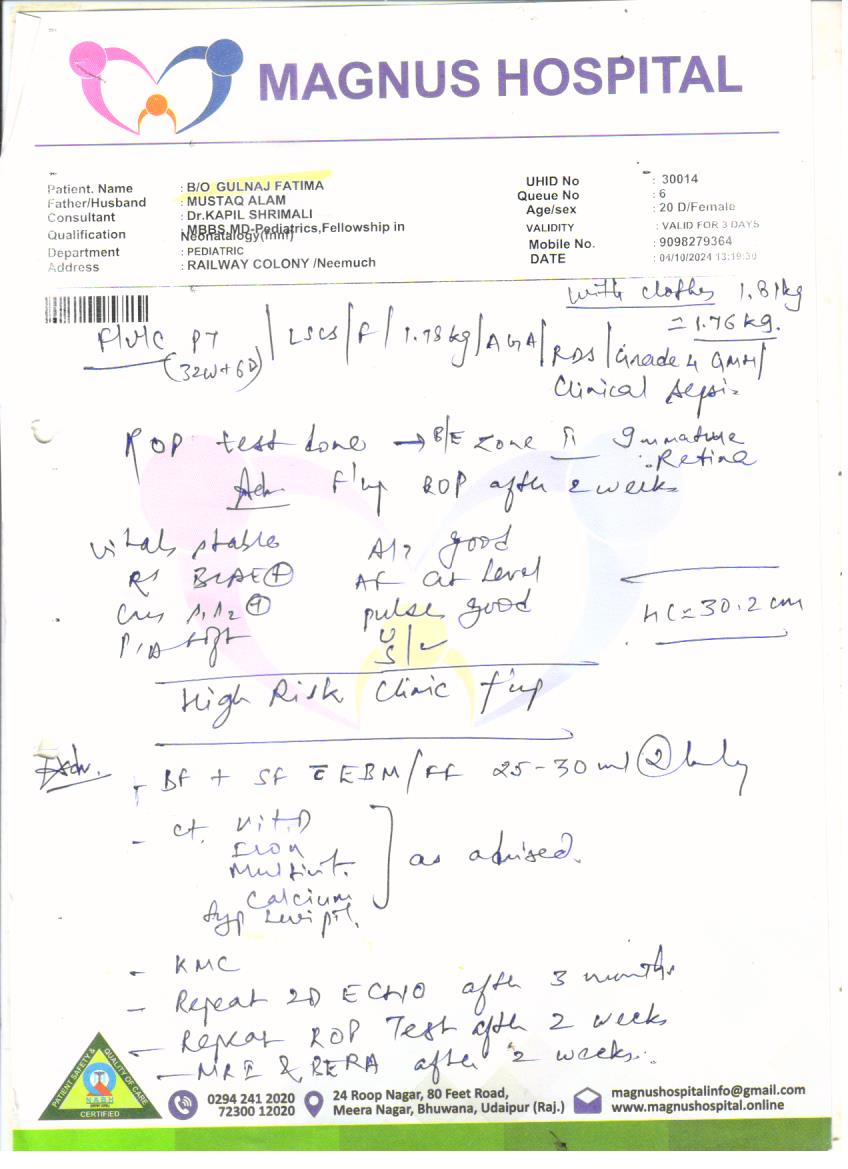 MAGNUS HOSPITAL
Patient. Name : B/O GULNAJ FATIMA
Father/Husband : MUSTAQ ALAM
Consultant : Dr.KAPIL SHRIMALI
Qualification : MBBS,MD-Pediatrics,Fellowship in Neonatalogy(fnnf)
Department : PEDIATRIC
Address : RAILWAY COLONY /Neemuch
UHID No : 30014
Queue No : 6
Age/sex : 20 D/Female
VALIDITY : VALID FOR 3 DAYS
Mobile No. : 9098279364
DATE : 04/10/2024 13:19:30
with clothes 1.81kg
= 1.76 kg.
PT / LSCS / F / 1.78 kg / AGA / RDS / Grade 4 GMH /
(32W+6D)
Clinical Sepsis
ROP test done → B/E Zone II Immature
Retina
Adv f'up ROP after 2 weeks
Vitals stable
RS BLAE +
CVS S1S2 +
P/A soft
good
AF at level
pulses good
U/S ✓
HC = 30.2 cm
High Risk Clinic f'up
Adv.
- BF + SF c̄ EBM/FF 25-30 ml 2 hrly
- ct. Vit.D
Iron
Multivit.
Calcium
Syp Levipil.
as advised.
- KMC
- Repeat 2D ECHO after 3 months
- Repeat ROP Test after 2 weeks
- MRI & BERA after 2 weeks.
PATIENT SAFETY & QUALITY OF CARE
NABH
CERTIFIED
0294 241 2020
72300 12020
24 Roop Nagar, 80 Feet Road,
Meera Nagar, Bhuwana, Udaipur (Raj.)
magnushospitalinfo@gmail.com
www.magnushospital.online